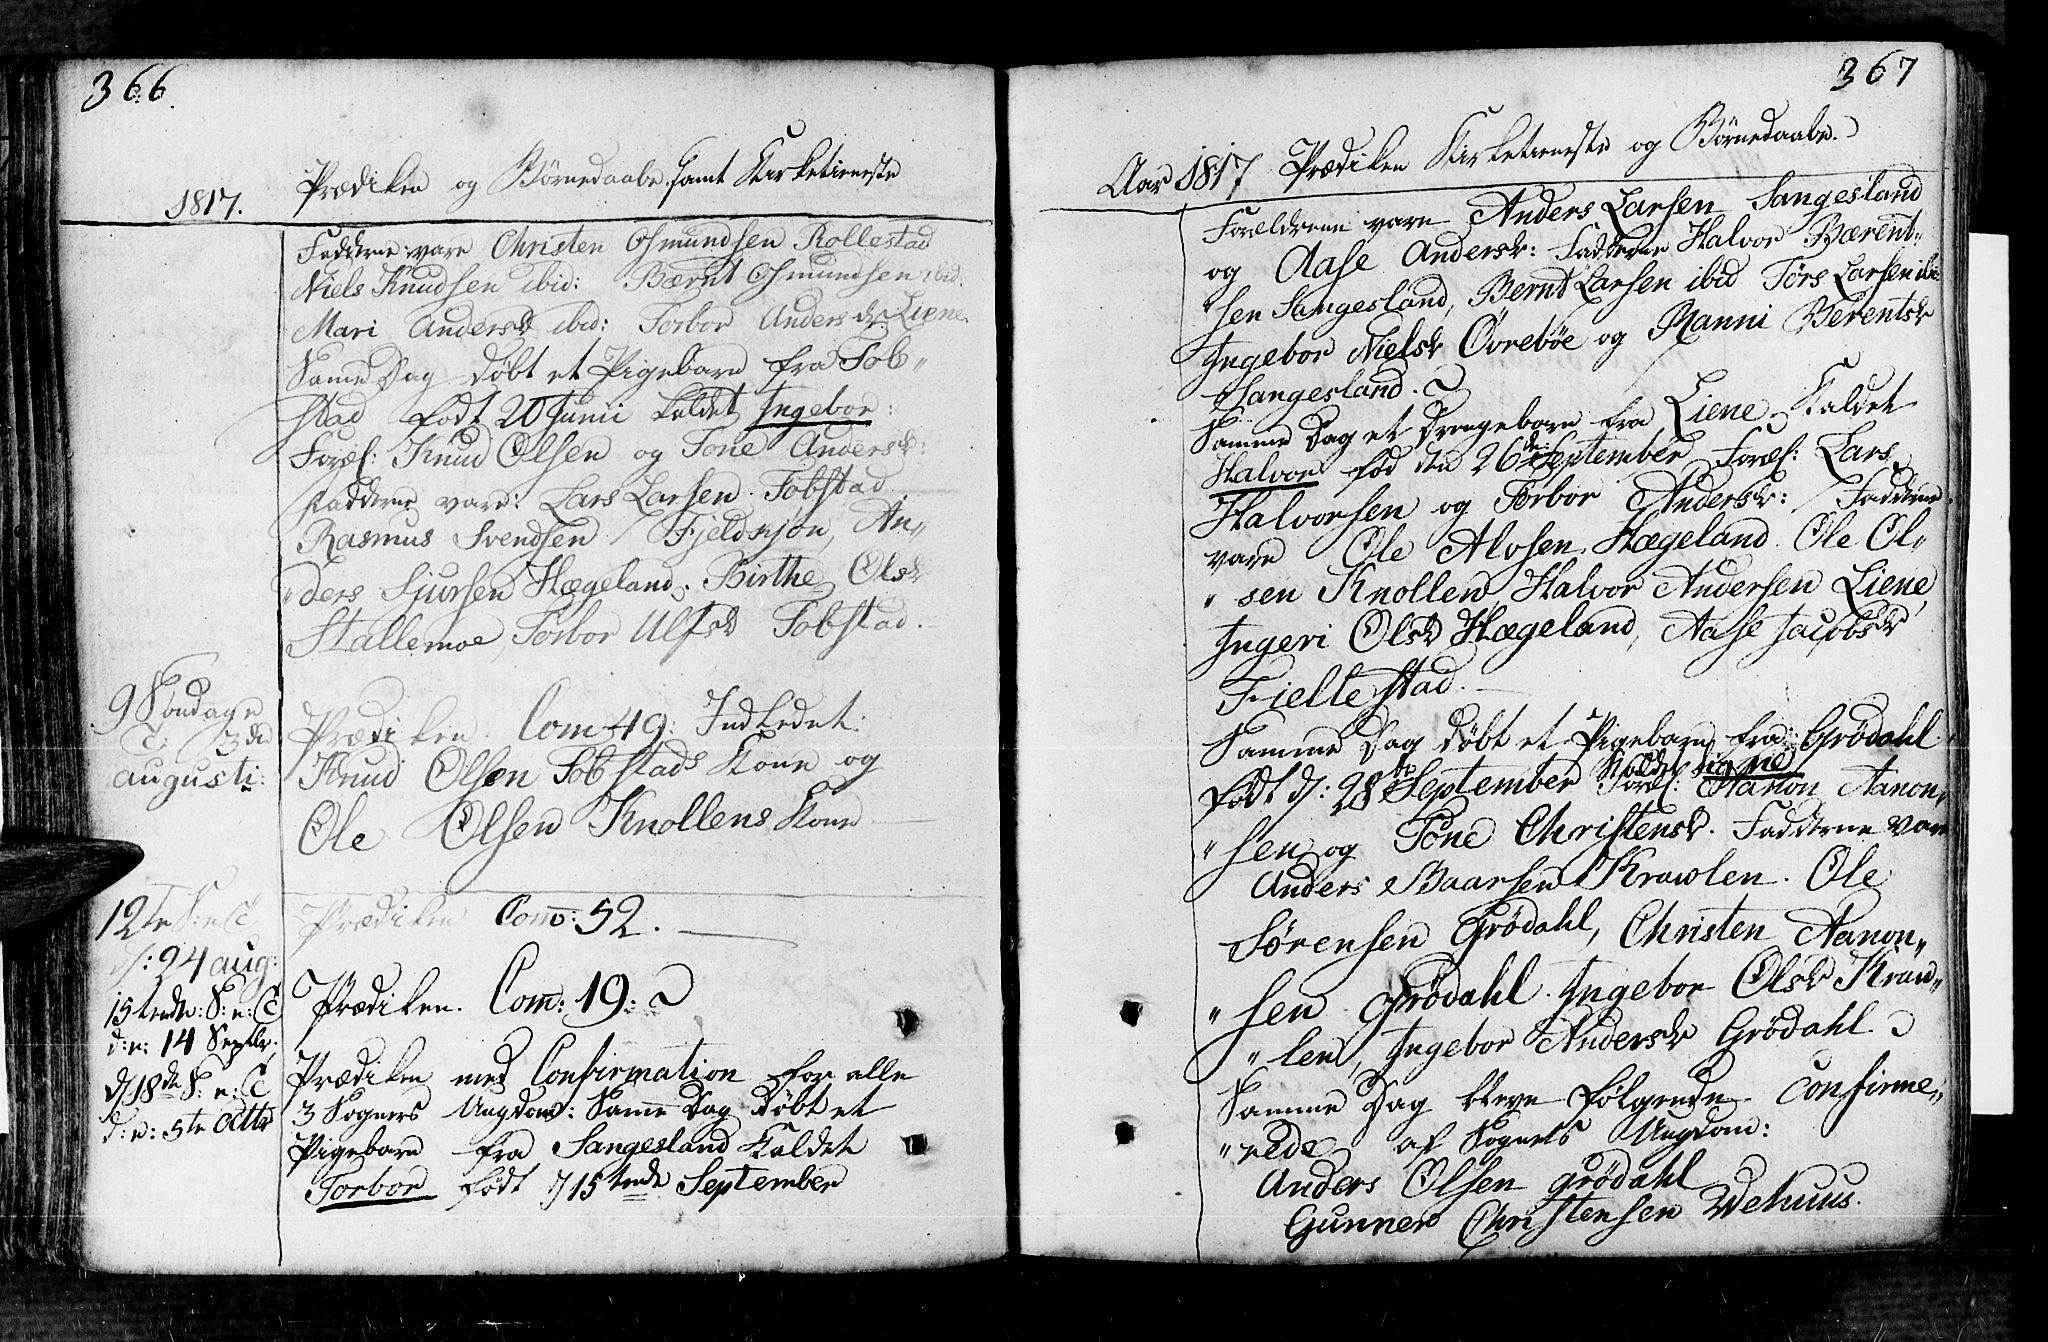 366.
1817. Prædiken og Börnedaabe samt Kirketieneste
Fadderne vare Christen Osmundsen Rollestad
Niels Knudsen ibid: Bærnt Osmundsen ibid.
Mari Andersd ibid: Torbor Andersdr Liene.
Same Dag döbt et Pigebarn fra Fob„
stad født 20 Junii kaldet Ingebor:
Foræl: Knud Olsen og Tone Andersd:
Fadderne vare: Lars Larsen Fobstad
Rasmus Svendsen Fjeldsjøn, An„
„ders Sjursen Hægeland, Birthe Olsd
Stallemoe, Torbor Ulfsd Fobstad.
9 Søndag e
T: 3die
augusti:
Prædiken. Com 49: Indledet:
Knud Olsen Fobstads Kone og
Ole Olsen Knollens Kone
12te S: e T
d: 24 aug:
Prædiken Com: 52.
15tende: S: e: T
d: e: 14 Septbr.
Prædiken. Com: 19:
d 18de S: e: T
d: e: 5te Octbr
Prædiken med Confirmation for alle
3 Sognets Ungdom: Same Dag døbt et
Pigebarn fra Sangesland Kaldet
Torbor født d 15tende September
367
Aar 1817 Prædiken Kirketieneste og Börnedaabe.
Forældrene vare Anders Larsen Sangesland
og Aase Andersd: Fadderne Halvor Bærent„
„sen Sangesland, Bernt Larsen ibid Törs Larsen ibi
Ingebor Nielsd Övrebøe og Ranni Berentsd
Sangesland.
Samme Dag et Drengebarn fra Liene Kaldet
Halvor fød den 26de September Foræl: Lars
Halvorsen og Torbor Andersd: Fadderne
vare Ole Alvsen Hægeland Ole Ol„
„sen Knollen Halvor Andersen Liene,
Ingeri Olsd Hægeland, Aase Jacobsd
Fieltestad.
Samme Dag døbt et Pigebarn fra Grödahl
født d: 28de September Kaldet Signe Foræl: Aanon Aanon„
„sen og Tone Christensd. Fadderne vare
Anders Baarsen Krawlen. Ole
Sörensen Grödahl, Christen Aanon„
„sen Grödahl. Ingebor Olsd Kraw„
„len, Ingebor Andersd Grödahl
Samme Dag bleve følgende Confirme„
„rede af Sognets Ungdom:
Anders Olsen grödahl
Gunner Christensen Wehuus.